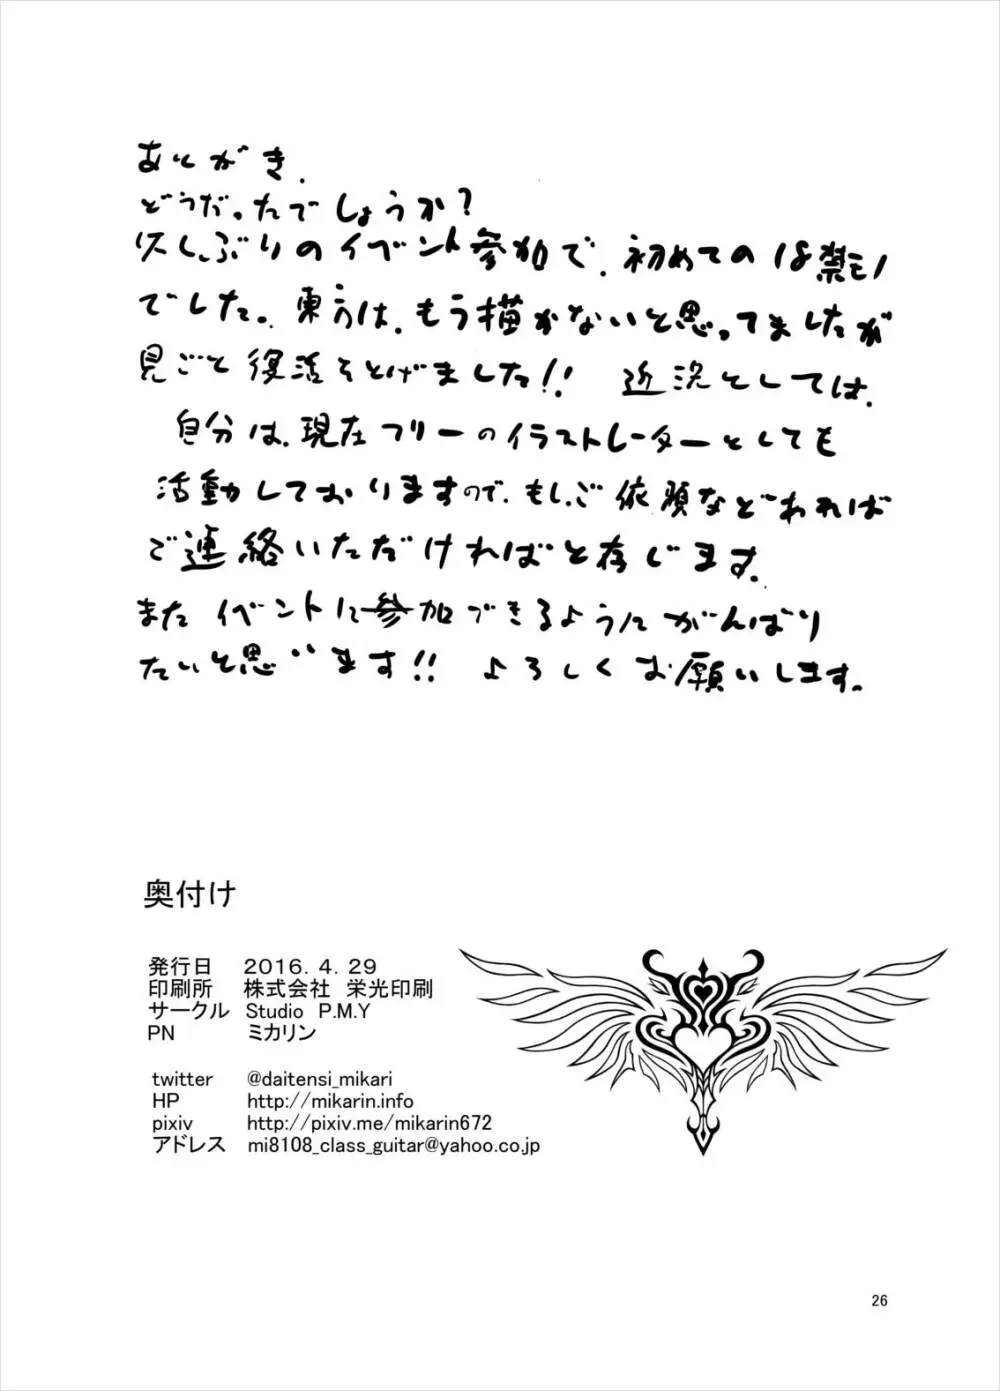 あとがき.
どうだったでしょうか？
久しぶりのイベント参加で、初めての18禁モノ
でした。東方は、もう描かないと思ってましたが
見ごと復活をとげました!! 近況としては、
自分は、現在フリーのイラストレーターとしても
活動しておりますので、もしご依頼などあれば
ご連絡いただければと存じます。
またイベントに参加できるようにがんばり
たいと思います!! よろしくお願いします。
奥付け
発行日 2016. 4. 29
印刷所 株式会社 栄光印刷
サークル Studio P.M.Y
PN ミカリン
twitter @daitensi_mikari
HP http://mikarin.info
pixiv http://pixiv.me/mikarin672
アドレス mi8108_class_guitar@yahoo.co.jp
26